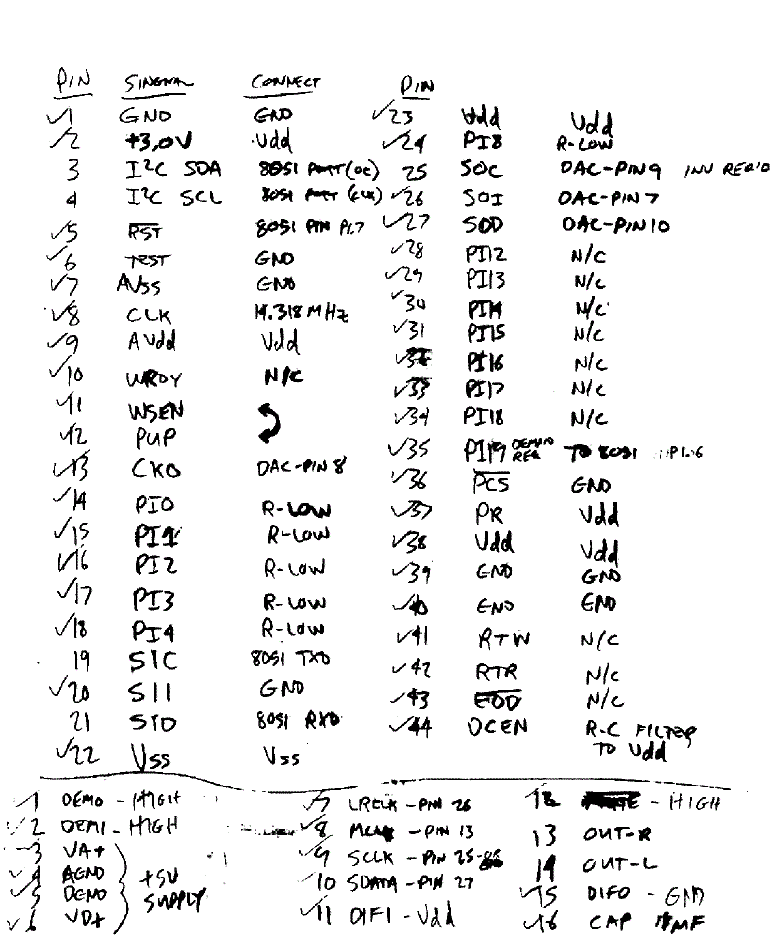 PIN SINGNAL CONNECT
✓1 GND GND
✓2 +3,0V Vdd
3 I2C SDA 8051 PORT (OC)
4 I2C SCL 8051 PORT (CLK)
✓5 RST 8051 PIN P1.7
✓6 TEST GND
✓7 AVSS GND
✓8 CLK 14.318 MHZ
✓9 AVdd Vdd
✓10 WRDY N/C
✓11 WSEN
✓12 PUP
✓13 CKO DAC-PIN 8
✓14 PI0 R-LOW
✓15 PI1 R-LOW
✓16 PI2 R-LOW
✓17 PI3 R-LOW
✓18 PI4 R-LOW
19 SIC 8051 TXD
✓20 SII GND
21 SID 8051 RXD
✓22 Vss Vss
PIN
✓23 Vdd Vdd
✓24 PI8 R-LOW
25 SOC DAC-PIN9 INV REQ'D
✓26 SOI DAC-PIN 7
✓27 SOD DAC-PIN10
✓28 PI12 N/C
✓29 PI13 N/C
✓30 PI14 N/C
✓31 PI15 N/C
✓32 PI16 N/C
✓33 PI17 N/C
✓34 PI18 N/C
✓35 PI19 REQ TO 8051 P1.6
✓36 PCS GND
✓37 PR Vdd
✓38 Vdd Vdd
✓39 GND GND
✓40 GND GND
✓41 RTW N/C
✓42 RTR N/C
✓43 EOD N/C
✓44 DCEN R-C FILTER
TO Vdd
✓1 DEM0 - HIGH
✓2 DEM1 - HIGH
✓3 VA+
✓4 AGND +5V
✓5 DGND SUPPLY
✓6 VD+
✓7 LRCLK - PIN 26
✓8 MCLK - PIN 13
✓9 SCLK - PIN 25
✓10 SDATA - PIN 27
✓11 DIF1 - Vdd
✓12 - HIGH
13 OUT-R
14 OUT-L
✓15 DIF0 - GND
✓16 CAP 1MF